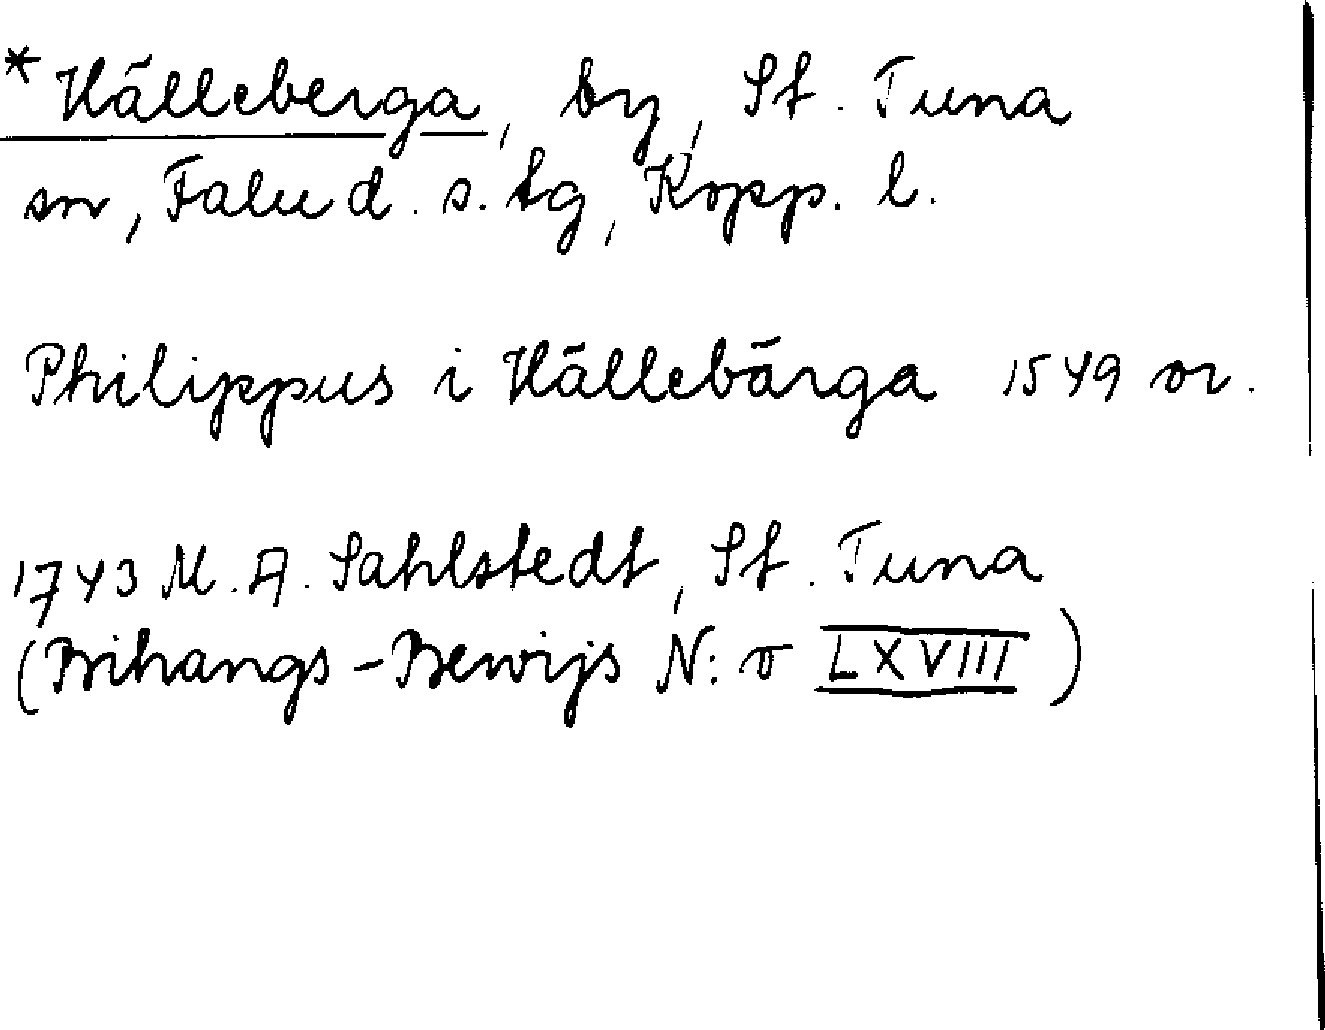 *Hälleberga, by, St. Tuna
sn, Falu d. s. tg, Kopp. l.
Philippus i Hällebärga 1549 or.
1743 M. A. Sahlstedt, St. Tuna
(Bihangs-Bewijs N:o LXVIII)